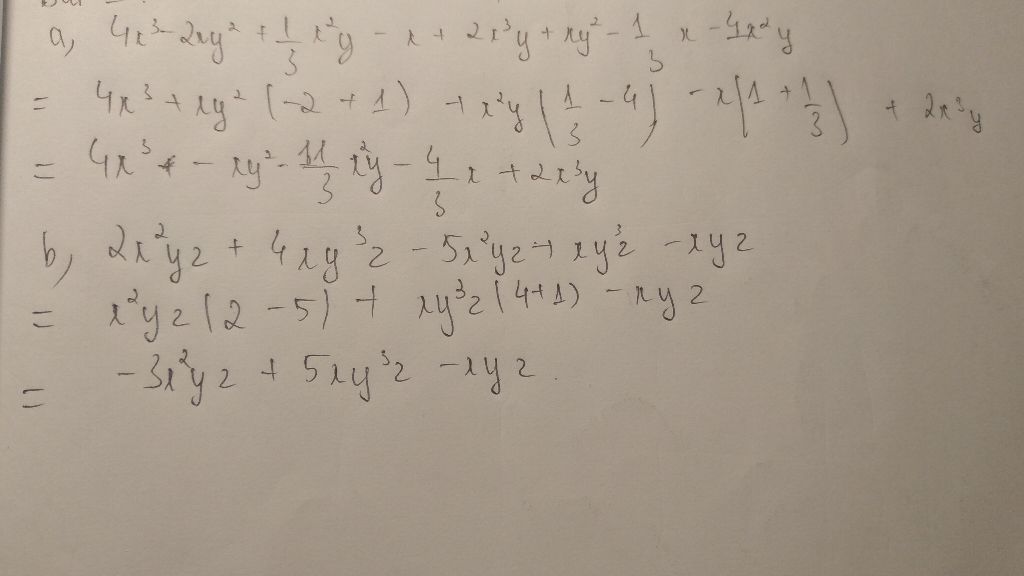 a, 4x³ - 2xy² + 1/3 x²y - x + 2x³y + xy² - 1/3 x - 4x²y
= 4x³ + xy² (-2 + 1) + x²y (1/3 - 4) - x(1 + 1/3) + 2x³y
= 4x³ - xy² - 11/3 x²y - 4/3 x + 2x³y
b, 2x²yz + 4xy³z - 5x²yz + xy³z - xyz
= x²yz (2 - 5) + xy³z (4+1) - xyz
= -3x²yz + 5xy³z - xyz.